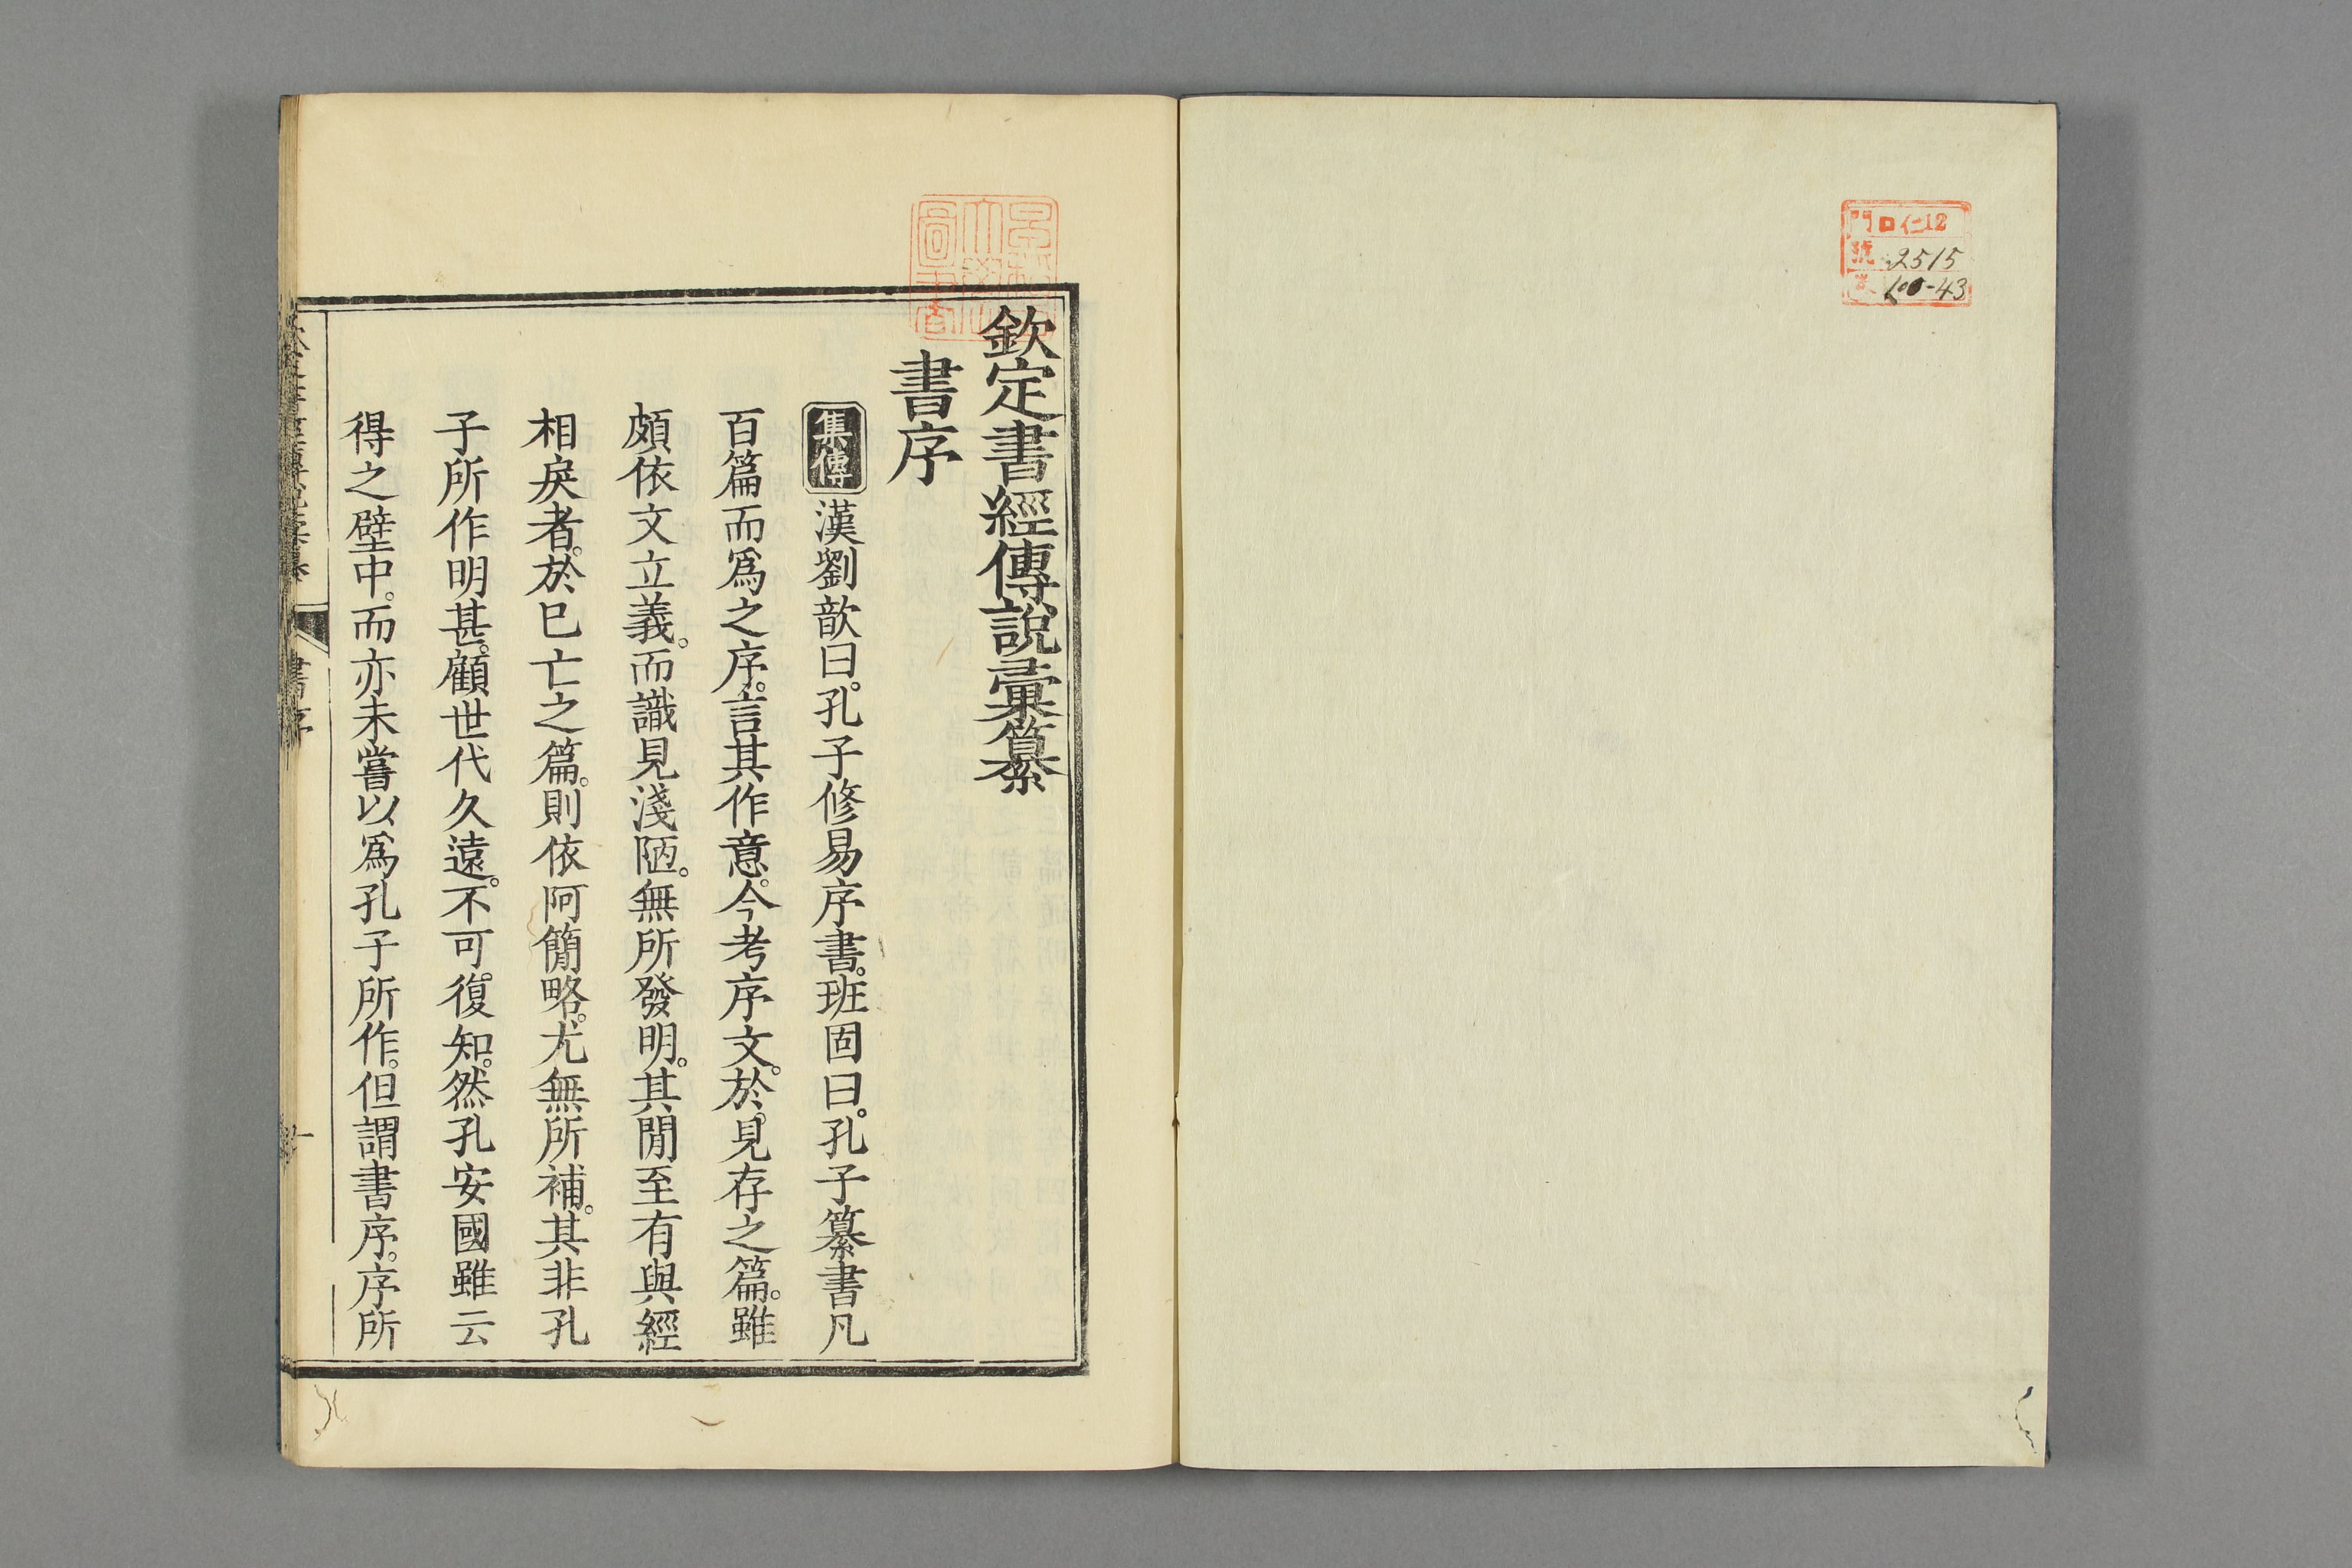 門 ロ仁12
號 2515
100-43
欽定書經傳說彙纂
書序
集傳 漢劉歆曰。孔子修易序書。班固曰。孔子纂書凡
百篇而爲之序。言其作意。今考序文。於見存之篇。雖
頗依文立義。而識見淺陋。無所發明。其閒至有與經
相戾者。於已亡之篇。則依阿簡略。尤無所補。其非孔
子所作明甚。顧世代久遠。不可復知。然孔安國雖云
得之壁中。而亦未嘗以爲孔子所作。但謂書序。序所
欽定書經傳說彙纂 書序 一